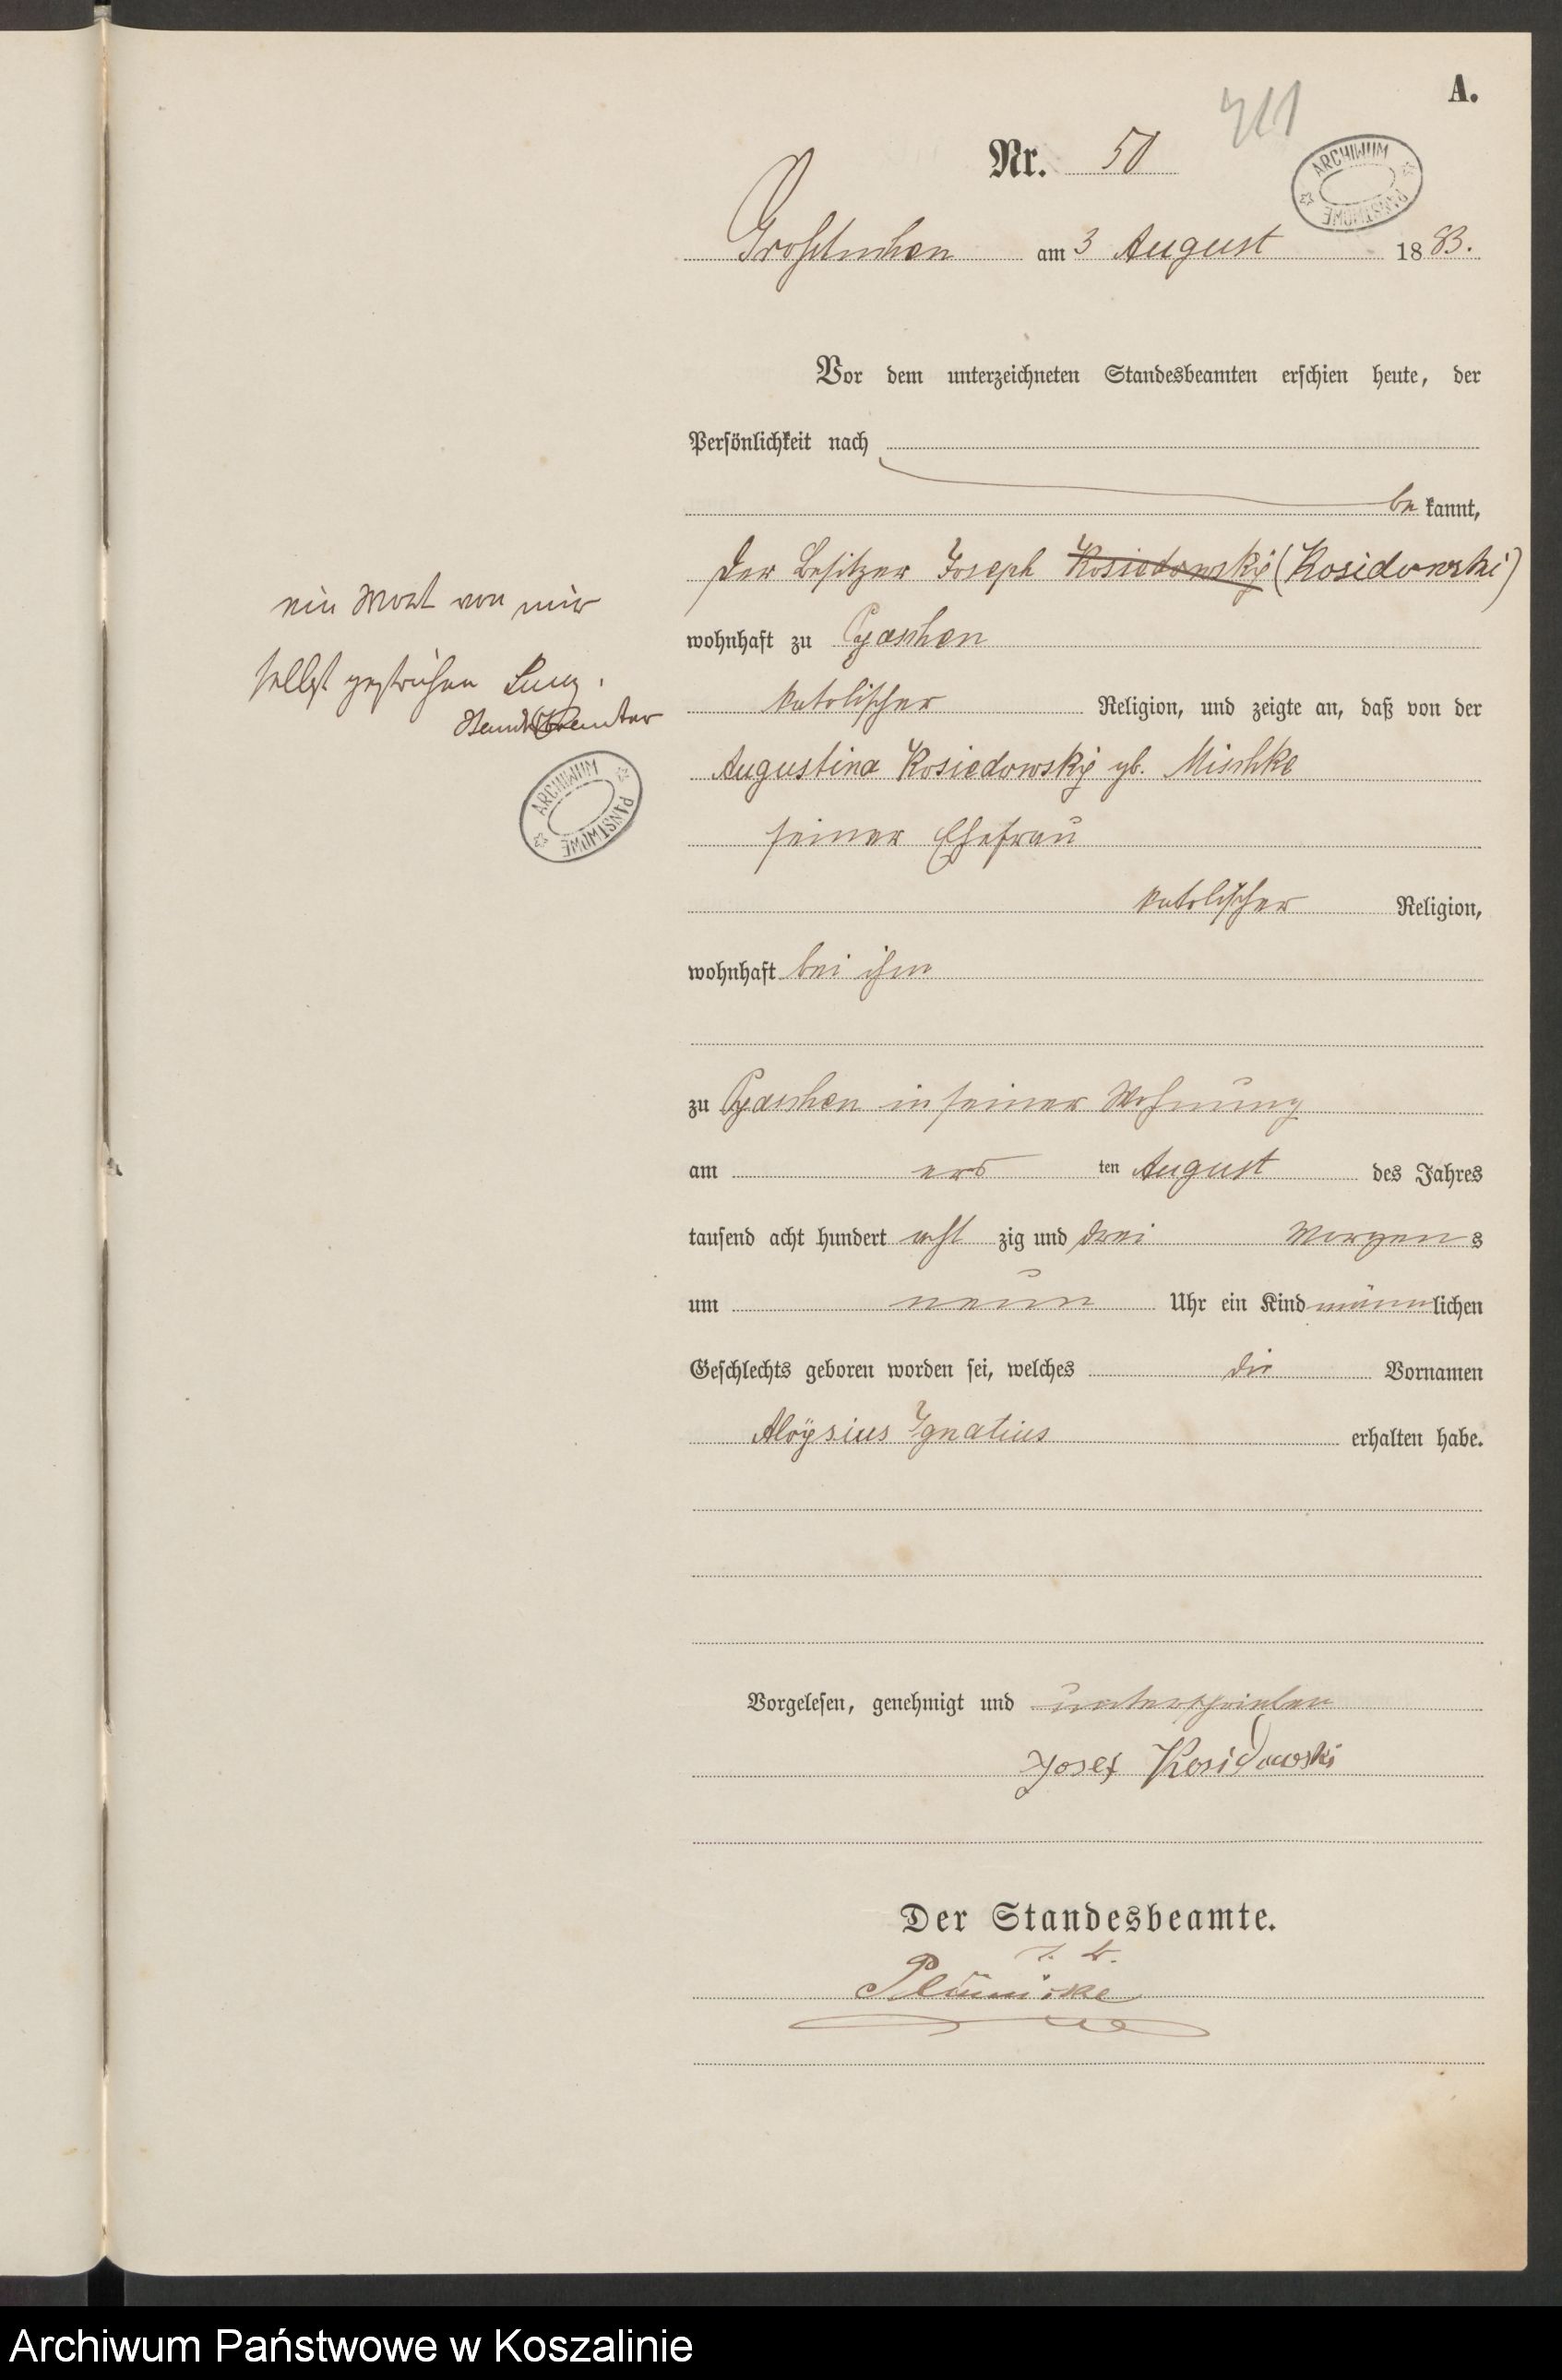 A.
Nr. 50
ARCHIWUM PAŃSTWOWE
Großtuchen am 3 August 1883.
Vor dem unterzeichneten Standesbeamten erschien heute, der
Persönlichkeit nach
be kannt,
der Besitzer Joseph Kosiedowsky (Kosidowski)
wohnhaft zu Pyaschen
katolischer Religion, und zeigte an, daß von der
Augustina Kosiedowsky gb. Mischke
seiner Ehefrau
katolischer Religion,
wohnhaft bei ihm
zu Pyaschen in seiner Wohnung
am ers ten August des Jahres
tausend acht hundert acht zig und drei Morgens
um neun Uhr ein Kind männlichen
Geschlechts geboren worden sei, welches die Vornamen
Aloÿsius Ignatius erhalten habe.
Vorgelesen, genehmigt und unterschrieben
Josef Kosidowski
Der Standesbeamte.
Plümicke
ein Wort von mir
selbst gestrichen
Standesbeamter
ARCHIWUM PAŃSTWOWE
Archiwum Państwowe w Koszalinie